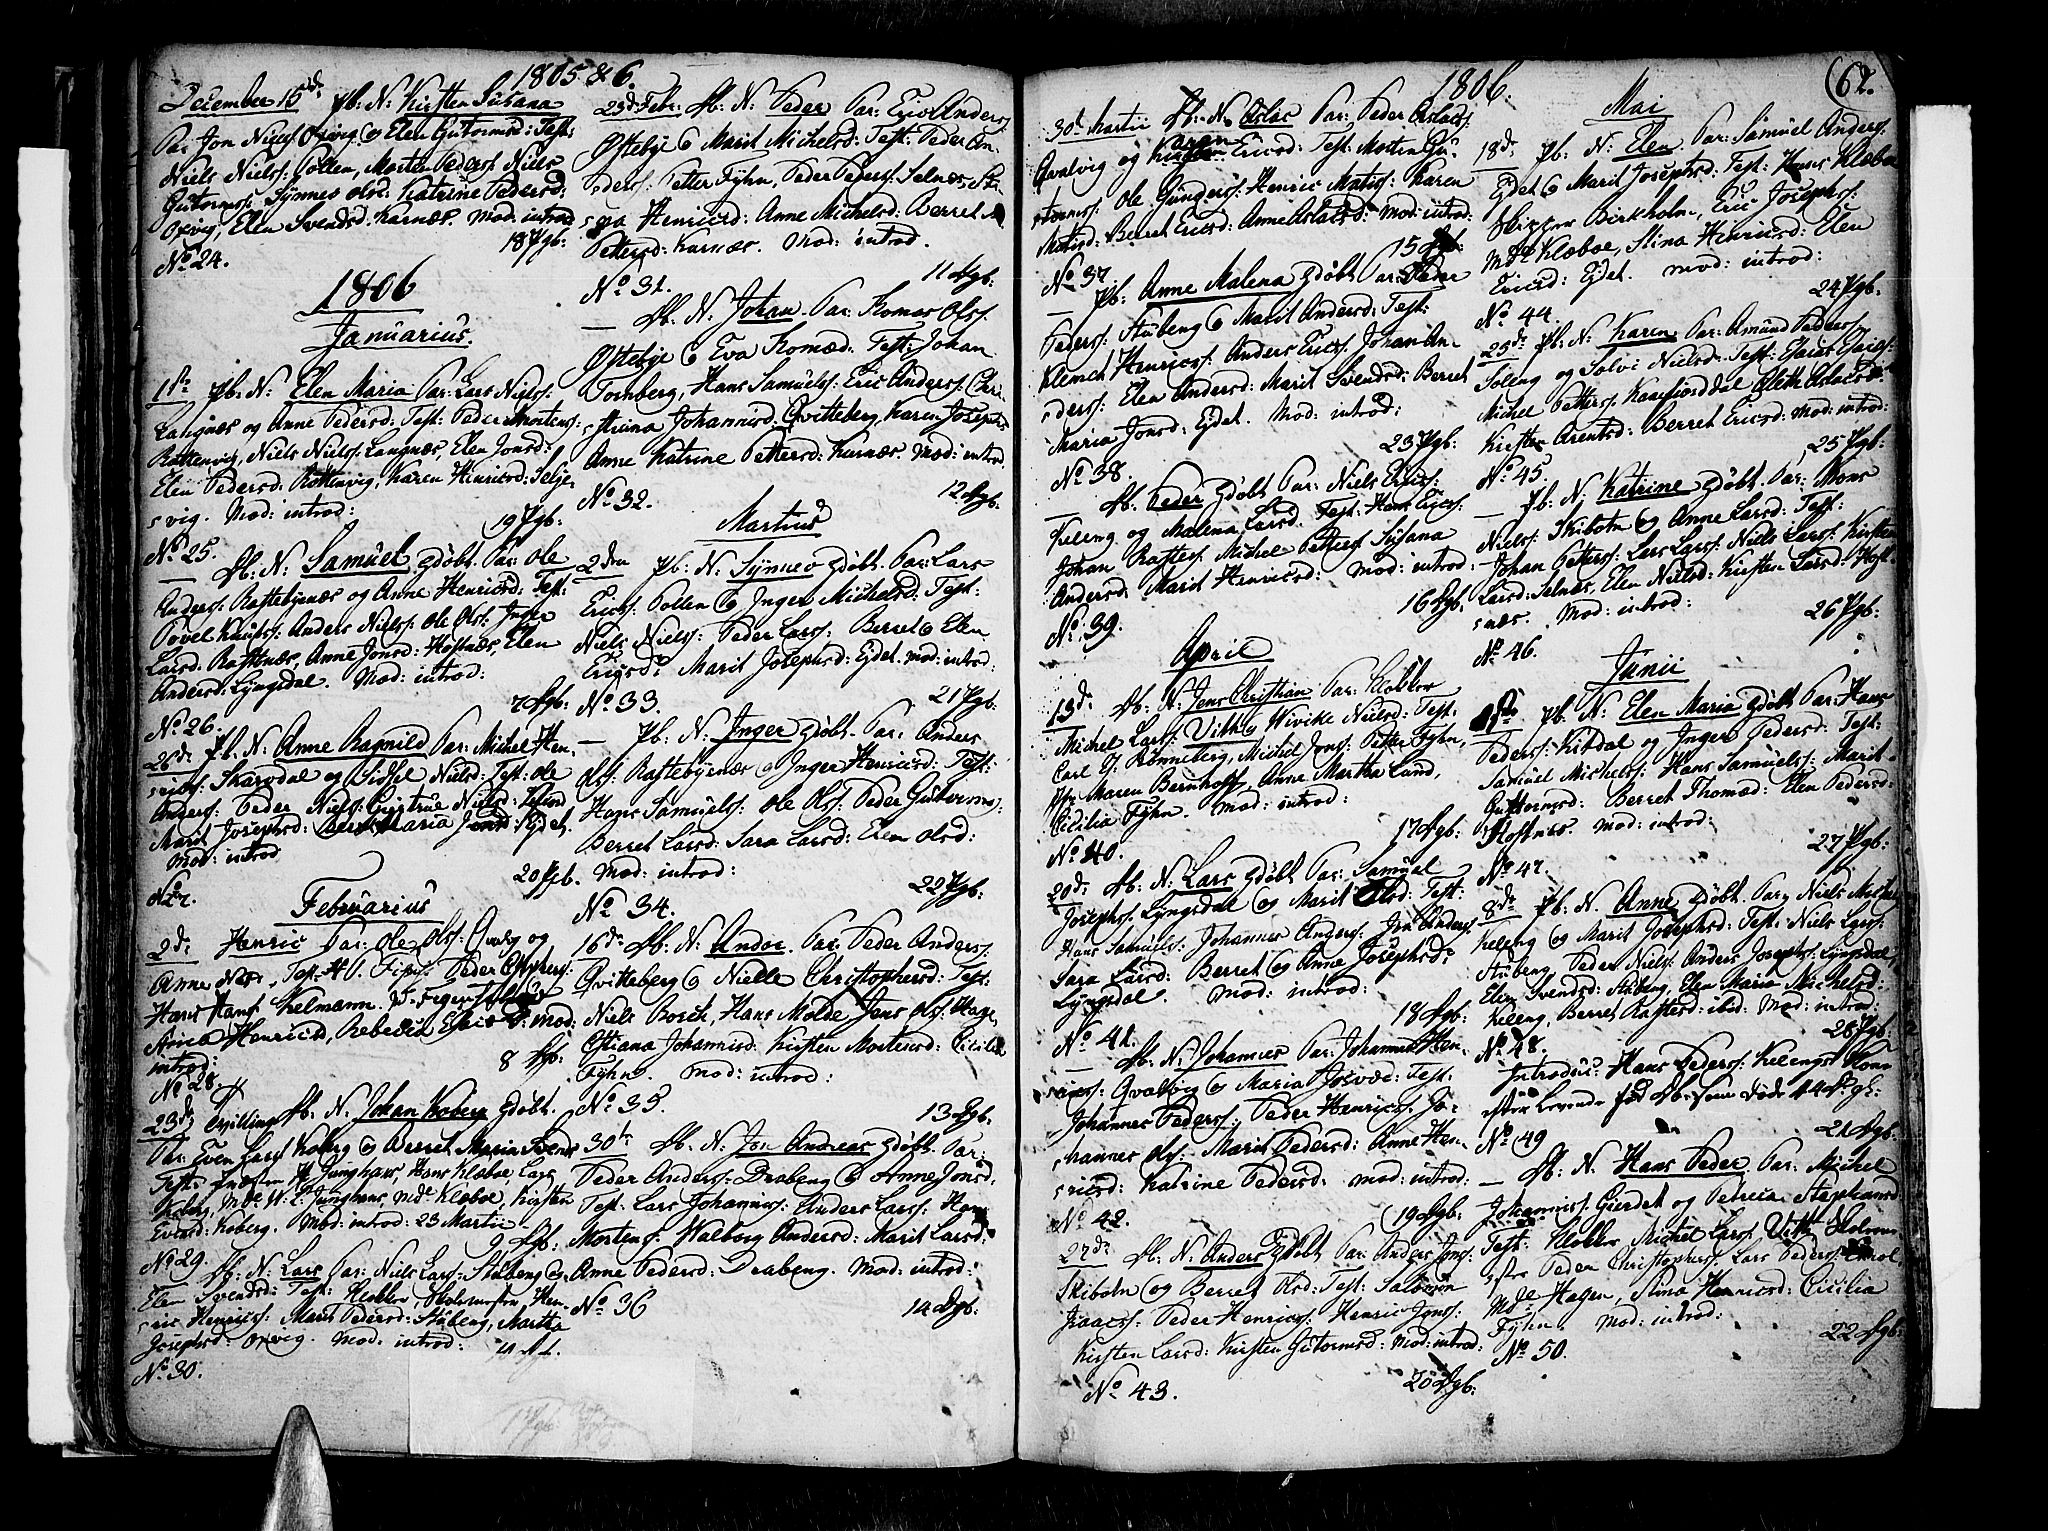 1805 & 6.
December 15de Pb: N: Kirsten Susana
Par: Jon Niels: Oxvig & Elen Gutormsd: Test:
Niels Niels: Pollen, Morten Peders: Niels
Gutorms: Synnev Olsd: Katrine Pedersd:
Oxvig, Elen Svendsd: Karnæs. Mod: introd
18 Pgb:
No 24.
1806
Januarius.
1ste Pb: N: Elen Maria Par: Lars Niels:
Langnæs og Anne Pedersd: Test: Peder Mortens:
Rottenvig, Niels Niels: Langnæs, Elen Jonsd:
Elen Pedersd: Rottenvig, Karen Henricsd: Selje
vig. Mod: introd:
19 Pgb:
No 25.
— Db: N: Samuel gdøbt. Par: Ole
Anders: Rastebynæs og Anne Henricsd: Test:
Povel Knuts: Anders Niels: Ole Ols: Inger
Larsd: Rastbnæs, Anne Jonsd: Hofsnæs, Elen
Andersd: Lyngsdal. Mod: introd:
7 Dgb:
No 26.
26de Pb: N: Anne Ragnild Par: Michel Hen
rics: Skarvdal og Sidsel Nielsd: Test: Ole
Anders: Peder Niels:
Marit Josephsd: Maria Ejdet.
Mod: introd
20 Pgb.
No 27.
Februarius
2de Henric Par: Ole Ols: Qvalvig og
Anne Test: Peder
Hans Hans: Kelmann.
Anna Henricsd, Rebecka mod:
introd:
8 Dgb:
No 28.
23de Db: N: Johan Koberg gdøbt.
Par: Even Lars: Koberg & Berret Maria
Test: Junghans, Hans Klæboe, Lars
Koberg, Mde Junghans, Mde Klæboe, Kirsten
Eversd: Koberg. Mod: introd: 23 Martii
9 Dgb:
No 29.
Db: N: Lars Par: Niels Lars: Stubeng &
Elen Svendsd: Test: Klokker, Skolemesteren Hen
ric Henrics: Marit Pedersd: Stubeng, Martha
Josephsd: Oxvig. Mod: introd:
No 30.
23de Febr: Db: N: Peder Par: Anders:
Oftebye & Marit Michelsd: Test: Peder An
ders: Petter Fyhn, Peder Peders: Selnæs,
Henricsd: Anne Michelsd: Berret
Pettersd: Karnæs. Mod: introd.
11 Dgb:
No 31.
— Db. N: Johan. Par: Thomas Ols:
Oftebye & Eva Thomæd: Test: Johan
Tornberg, Hans Samuels: Eric Anders: Chri
stina Johannisd: Qvitteberg, Karen Josephsd
Anne Katrine Pettersd: Karnæs. Mod: introd
12 Dgb.
No 32.
Martius
2den Pb: N: Synnev gdøbt Par: Lars
Erics: Pollen & Inger Michelsd: Test:
Niels Niels: Peder Lars: Berret & Elen
Ericsd: Marit Josephsd: Ejdet. mod: introd:
21 Pgb.
No 33.
— Pb: N: Inger gdøbt. Par: Anders
Ols: Rastebyenæs & Inger Henricsd: Test:
Hans Samuels: Ole Ols: Peder Gutorms:
Berret Larsd: Sara Larsd: Elen Olsd:
Mod: introd:
22 Pgb:
No 34.
16de Db: N: Andor. Par: Peder Anders:
Qvitteberg & Nielle Christophersd: Test:
Niels Bosch, Hans Molde, Jens Ols: Hagen
Christiana Johannisd: Kirsten Mortensd: Cicilia
Fyhn. Mod: introd:
No 35.
13 Dgb:
30te Db: N: Jon Andreas gdøbt. Par:
Peder Anders: Drabeng & Anne Jonsd:
Test: Lars Johannis: Anders Lars: Hans
Mortens: Walborg Andersd: Marit Larsd:
Anne Pedersd: Drabeng. Mod: introd:
14 Dgb:
No 36
62.
1806.
30te Martii Db: N: Aslac Par: Peder Aslacs:
Qvalvig og Karen Ericsd: Test: Morten Gu
torms: Ole Gunders: Henric Matis: Karen
Matisd: Berret Ericsd: Anne Aslacsd: Mod: introd:
15 Dgb:
No 37.
— Pb: Anne Malena gdøbt Par: Peder
Peders: Stubeng & Marit Andersd: Test:
Klemet Henrics: Anders Erics: Johan An
ders: Elen Andersd: Marit Svendsd: Berret
Maria Jonsd: Ejdet. Mod: introd:
23 Pgb:
No 38.
— Db. Peder gdøbt Par: Niels Erics:
Keleng og Malena Larsd: Test: Hans Erics:
Johan Rasters: Michel Petters: Susana
Andersd: Marit Henricsd: Mod: introd.
16 Dgb.
No 39.
April
13de Db: N: Jens Christian Par: Klokker
Michel Lars: Vith & Wivike Nielsd: Test:
Carl J: Rönneberg, Michel Jons: Petter Fyhn,
Maren Bernhoft, Anne Martha Lund,
Cicilia Fyhn. Mod: introd:
17 Dgb:
No 40.
20de Db: N: Lars gdøbt Par: Samuel
Josephs: Lyngsdal & Marit Olsd: Test:
Hans Samuels: Johannes Anders: Jon Anders:
Sara Larsd: Berret & Anne Josephsd:
Lyngsdal. Mod: introd:
18 Dgb:
No 41.
— Db: N: Johannes Par: Johannes Hen
rics: Qvalvig & Maria Josvæd: Test:
Johannes Peders: Peder Henrics: Jo
hannes Ols: Marit Pedersd: Anne Hen
ricsd: Katrine Pedersd: Mod: introd:
19 Dgb:
No 42.
27de Db: N: Anders gdøbt Par: Anders Jons:
Skibotn & Berret Olsd: Test: Salomon
Isaacs: Peder Henrics: Henric Jons:
Kirsten Larsd: Kirsten Gutormsd: Mod: introd:
20 Dgb:
No 43.
Mai
18de Pb: N: Elen Par: Samuel Anders:
Ejdet & Marit Josephsd: Test: Hans Klæboe
Skipper Birkholm, Eric Josephs:
Mde Klæboe, Stina Henricsd: Elen
Ericsd: Ejdet. mod: introd:
24 Pgb:
No 44.
25de Pb: N: Karen Par: Amund Peders:
Soleng og Solvi Nielsd: Test:
Michel Petters: Kaasfiorddal
Kirsten Arentsd: Berret Ericsd: Mod: introd:
25 Pgb:
No 45.
— Pb: N: Katrine gdøbt. Par: Mons
Niels: Skibotn & Anne Larsd: Test:
Johan Peters: Lars Lars: Niels Lars: Kirsten
Larsd: Selnæs, Elen Nielsd: Kirsten Larsd: Hofs
næs. Mod: introd:
26 Pgb:
No 46.
Junii
Pb: N: Elen Maria gdøbt Par: Hans
Peders: Kitdal og Inger Pedersd: Test:
Samuel Michels: Hans Samuels: Marit
Guttormsd: Berret Thomæd: Elen Pedersd:
Hofsnæs. Mod: introd:
27 Pgb:
No 47.
8de Pb: N. Anne gdøbt. Par: Niels
Keleng & Marit Josephsd: Test: Niels Lars:
Stubeng, Peder Niels: Anders Josephs: Lyngsdal,
Elen Svendsd: Stubeng, Elen Maria Michelsd:
Keleng, Berret Rastersd: ibid: Mod: introd
28 Pgb:
No 48.
Introduc: Hans Peders: Kelengs Kone
efter Levende fød Db. som døde
21 Dgb.
No 49
— Db. N. Hans Peder Par: Michel
Johannis: Gierdet og Petrica Stephansd:
Test: Klokker Michel Lars: Vith
Peder Christophers: Lars Peders:
Mde Hagen, Stina Henricsd: Cicilia
Fyhn. Mod: introd:
22 Dgb:
No 50.